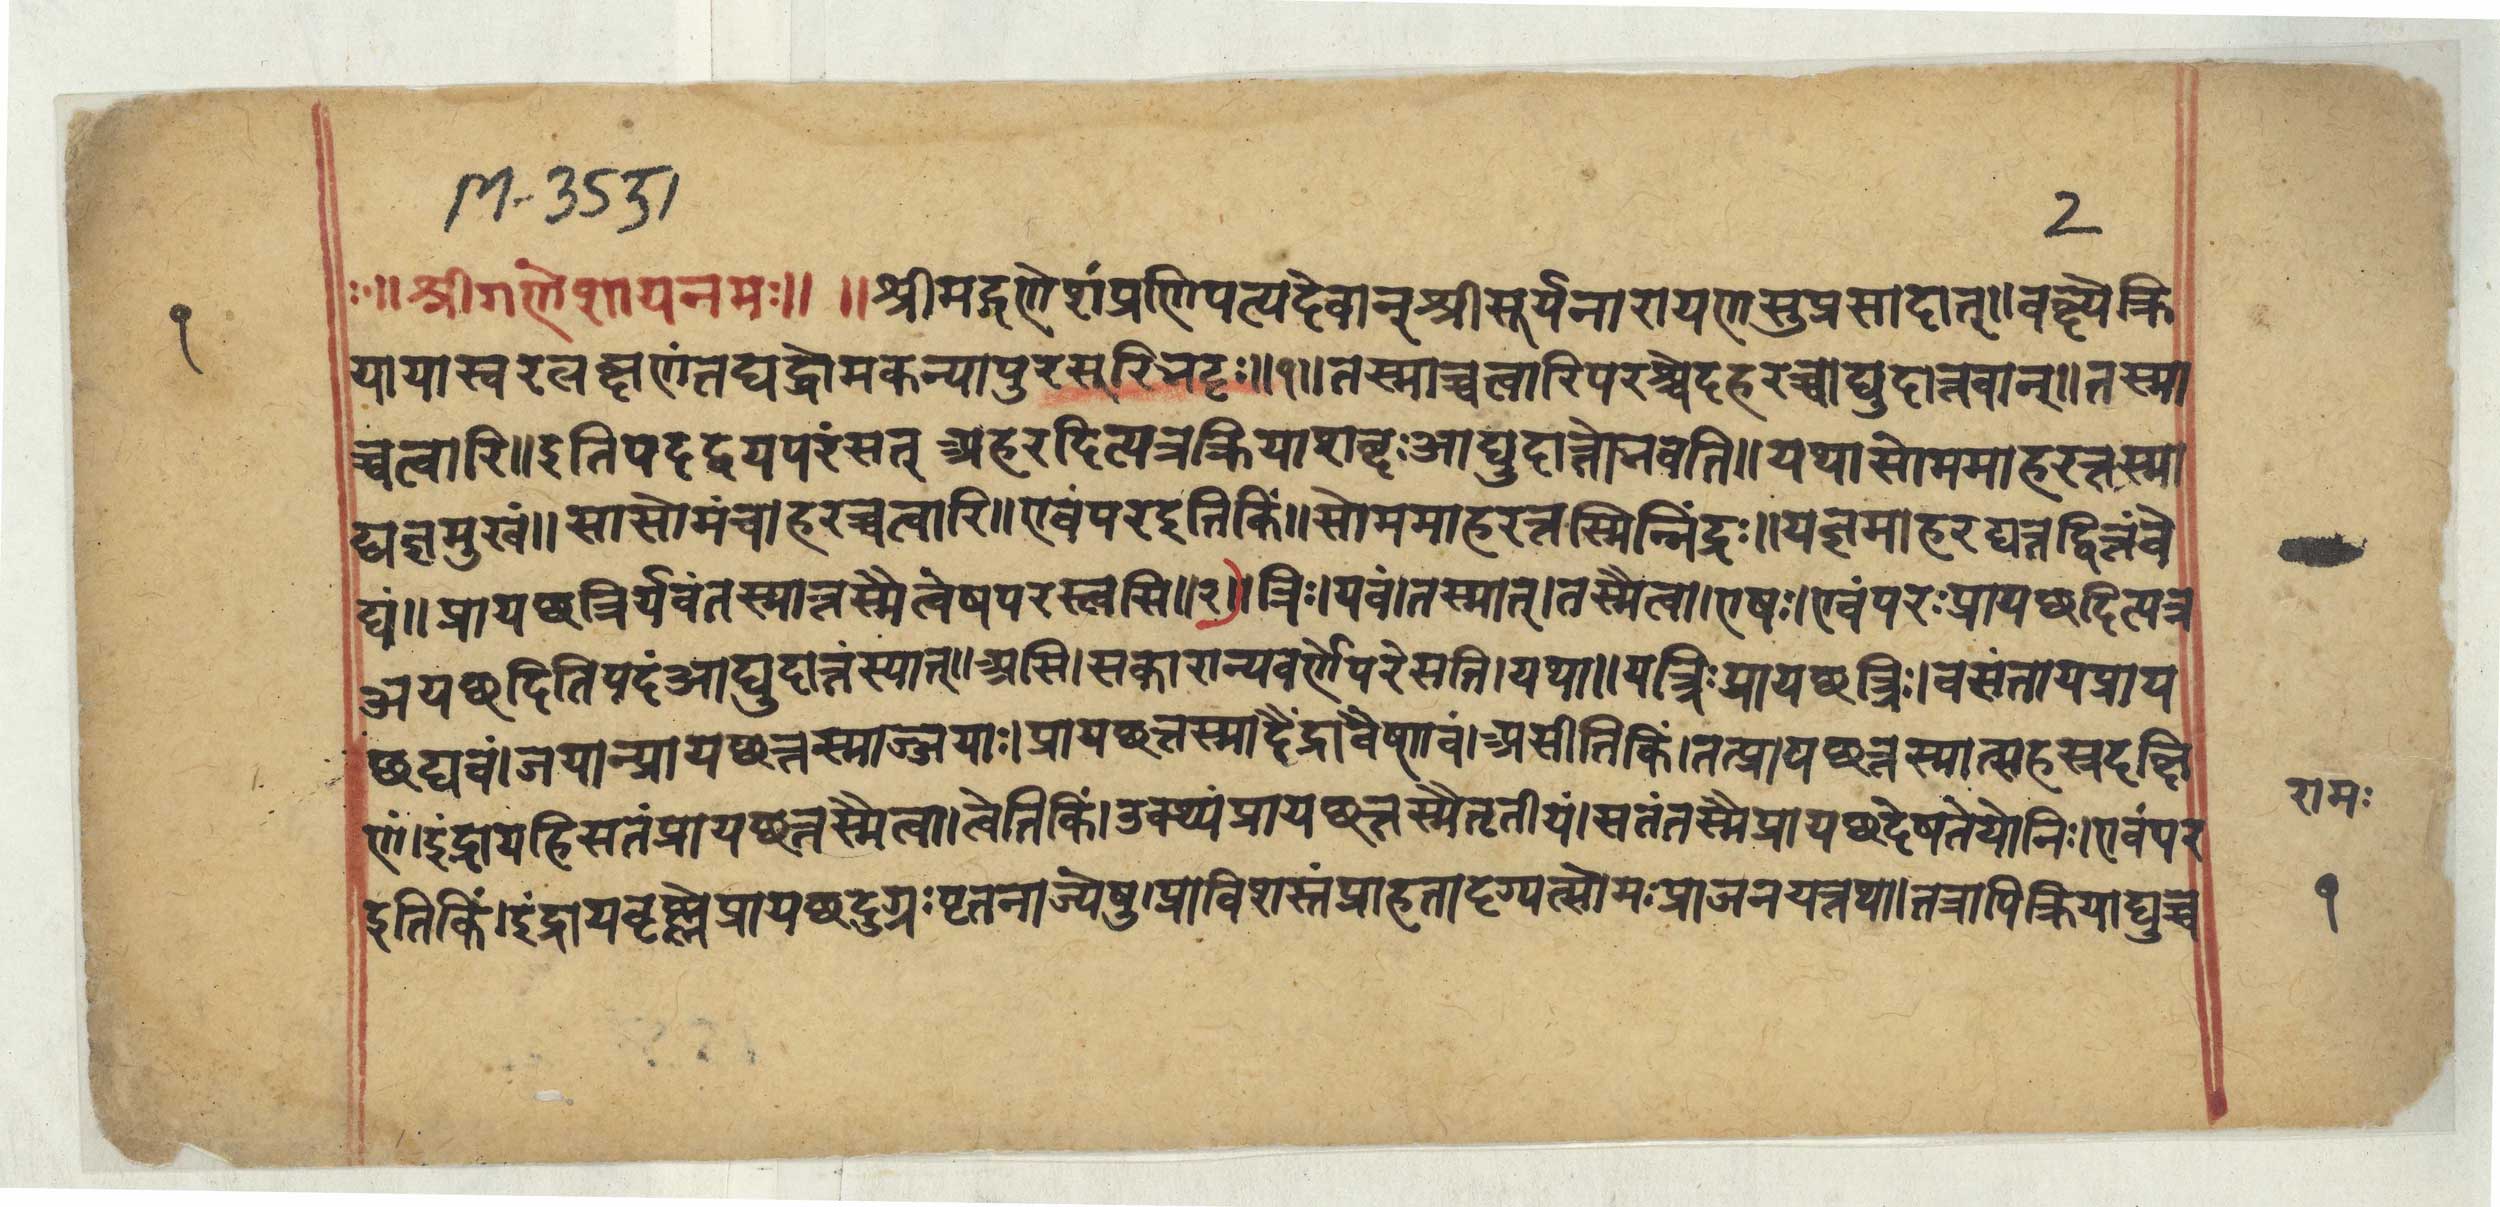 M-3531
2
ः॥श्रीगणेशायनमः॥ ॥श्रीमद्गणेशंप्रणिपत्यदेवान्श्रीसूर्यनारायणसुप्रसादात्॥वक्ष्येक्रि
१
यायास्वरलक्षणंतद्यद्भौमकन्यापुरसूरिभट्टः॥१॥तस्माच्चत्वारिपरश्चैदहरच्चोद्युदात्तवान्॥तस्मा
च्चत्वारि॥इतिपदद्वयपरंसत्अहरदित्यत्रक्रियाशब्दःआद्युदात्तोभवति॥यथासोममाहरत्तस्मा
द्यज्ञमुखं॥सासोमंचाहरच्चत्वारि॥एवंपरइतिकिं॥सोममाहरत्तस्मिन्निंद्रः॥यज्ञमाहरद्यत्तद्वित्तंवे
द्यं॥प्रायच्छत्त्रिर्यवंतस्मात्तस्मैत्वेषपरस्त्वसि॥२॥त्रिः।यवं।तस्मात्।तस्मैत्वा।एषः।एवंपरःप्रायच्छदित्यत्र
अयच्छदितिपदंआद्युदात्तंस्यात्॥असि।सकारान्यवर्णेपरेसति।यथा॥यत्त्रिःप्रायच्छत्त्रिः।वसंतायप्राय
च्छद्यवं।जयान्प्रायच्छत्तस्माज्जयाः।प्रायच्छत्तस्मादैंद्रावैष्णवं।असीतिकिं।तत्प्रायच्छत्तस्मात्सहस्रदक्षि
णं।इंद्रायहिसतंप्रायच्छत्तस्मैत्वा।त्वेतिकिं।उक्थ्यंप्रायच्छत्तस्मैतृतीयं।सतंतस्मैप्रायच्छदेषतेयोनिः।एवंपर
रामः
इतिकिं।इंद्रायवृष्णेप्रायच्छदुग्रःपृतनाज्येषु।प्राविशस्तंप्राहृतादृग्यत्सोमःप्राजनयत्तथा।तत्रापिक्रियाद्युच्च
१